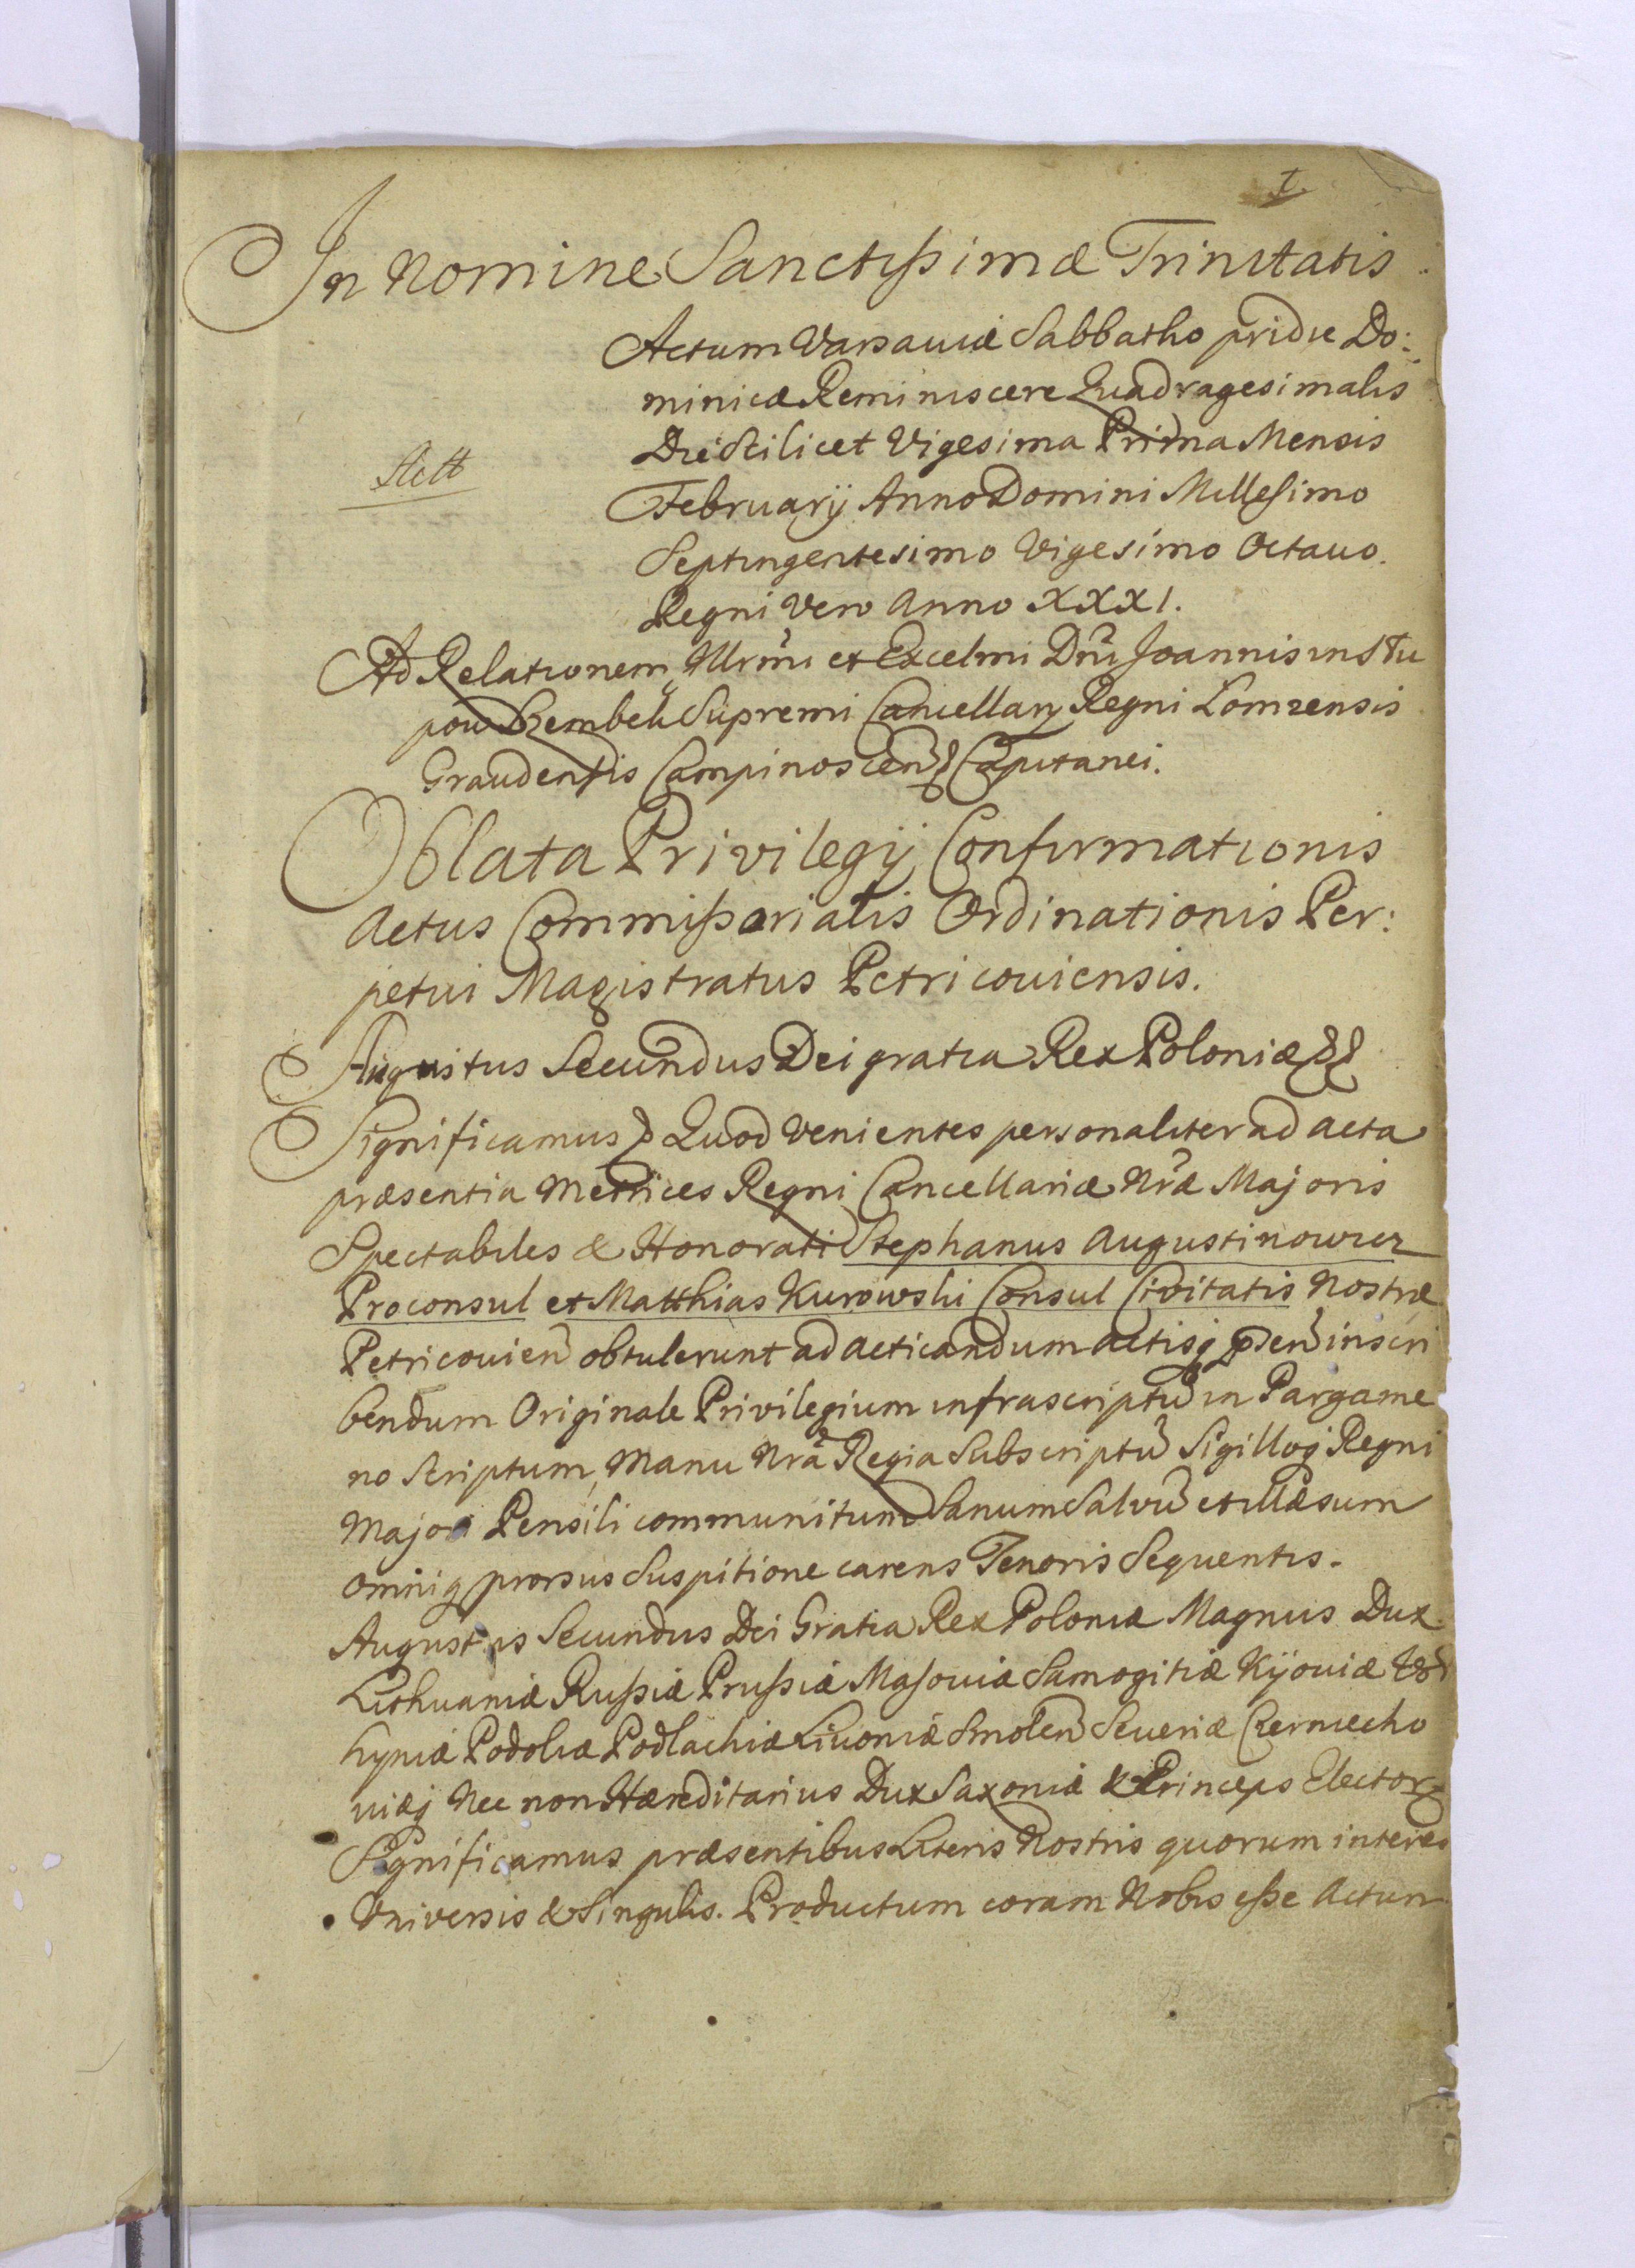 1.
In Nomine Sanctissimæ Trinitatis.
Actum Varsaviæ Sabbatho pridie Do:
minicæ Reminiscere Quadragesimalis
Die Scilicet Vigesima Prima Mensis
Actt
Februarij Anno Domini Millesimo
Septingentesimo Vigesimo Octavo.
Regni Vero Anno XXXI.
Ad Relationem Illrmi et Excelmi Dni Joannis in Stu
pow Szembek Supremi Cancellarij Regni Lomzensis
Graudentis Campinoscen Capitanei.
Oblata Privilegij Confirmationis
Actus Commissorialis Ordinationis Per:
petui Magistratus Petricoviensis.
Augustus Secundus Dei gratia Rex Poloniæ
Significamus Quod Venientes personaliter ad acta
præsentia Metrices Regni Cancellariæ Nræ Majoris
Spectabiles & Honorati Stephanus Augustinowicz
Proconsul et Matthias Kurowski Consul Civitatis Nostræ
Petricovien obtulerunt ad acticandum actisq psen inscri
bendum Originale Privilegium infrascriptu in Pargame
no Scriptum, Manu Nra Regia Subscriptu Sigilloq Regni
Majori Pensili communitum Sanum Salvu et illæsum
omniq prorsus Suspitione carens Tenoris Sequentis.
Augustus Secundus Dei Gratia Rex Poloniæ Magnus Dux
Lithuaniæ Russiæ Prussiæ Masoviæ Samogitiæ Kijoviæ Vol
hyniæ Podoliæ Podlachiæ Livoniæ Smolen Severiæ Czerniecho
viæq Nec non Hæreditarius Dux Saxoniæ & Princeps Elector
Significamus præsentibus Literis Nostris quorum interes
Universis & Singulis. Productum coram Nobis esse Actum